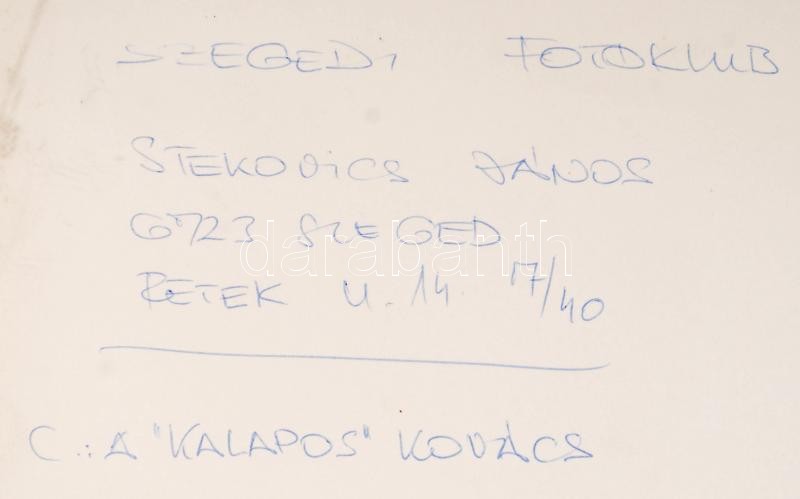 SZEGEDI FOTOKLUB
STEKOVICS JÁNOS
6723 SZEGED
RETEK U. 14. 17/40
C.: A "KALAPOS" KOVÁCS
darabanth